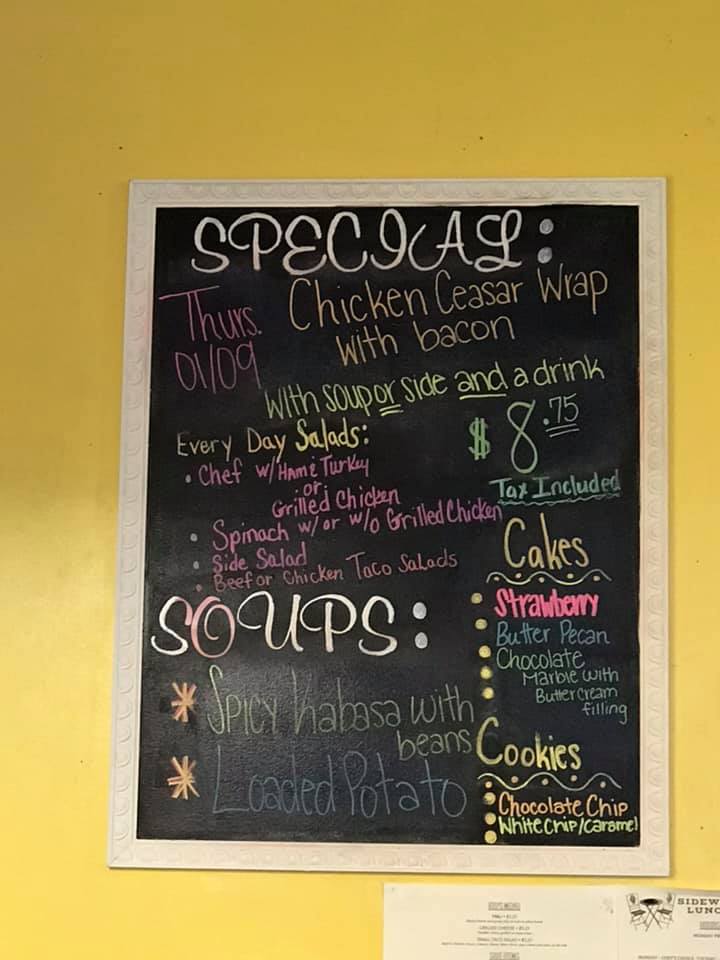 SPECIAL:
Thurs.
01/09
Chicken Ceasar Wrap
with bacon
With soup or side and a drink
$8.75
Tax Included
Every Day Salads:
• Chef w/ Ham & Turkey
or
Grilled Chicken
• Spinach w/ or w/o Grilled Chicken
• Side Salad
• Beef or Chicken Taco Salads
SOUPS:
* Spicy Kabasa with
beans
* Loaded Potato
Cakes
• Strawberry
• Butter Pecan
• Chocolate
Marble with
Buttercream
filling
Cookies
• Chocolate Chip
• White Chip/Caramel
GRILLED CHEESE
SIDEW
LUNC